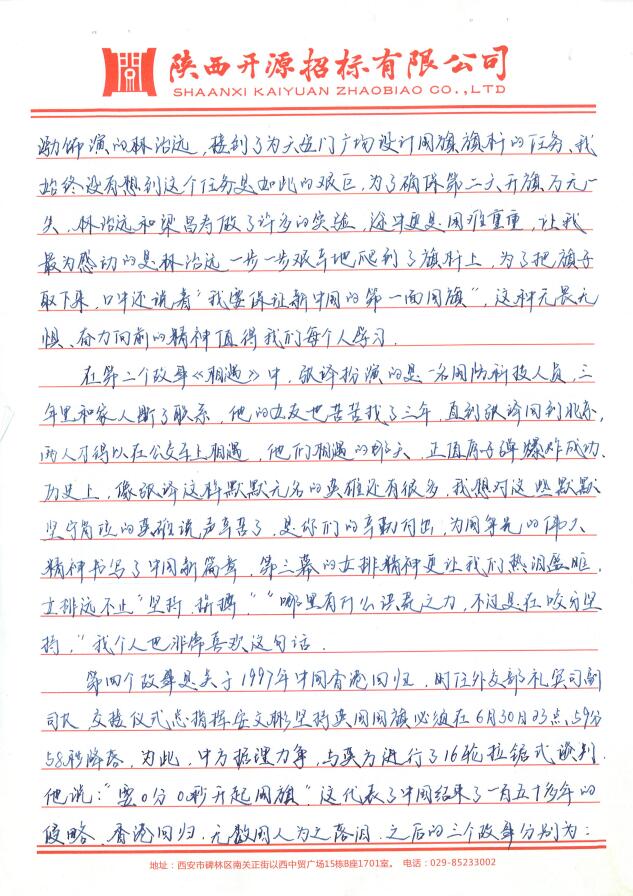 陕西开源招标有限公司
SHAANXI KAIYUAN ZHAOBIAO CO.,LTD
渤饰演的林治远,接到了为天安门广场设计国旗旗杆的任务、我
始终没有想到这个任务是如此的艰巨,为了确保第二天升旗万无一
失,林治远和梁昌寿做了许多的实验,途中更是困难重重,让我
最为感动的是林治远一步一步艰辛地爬到了旗杆上,为了把旗子
取下来,口中还说着“我要保证新中国的第一面国旗”,这种无畏无
惧、奋力向前的精神值得我们每个人学习.
在第二个故事《相遇》中,张译扮演的是一名国防科技人员,三
年里和家人断了联系,他的女友也苦苦找了三年,直到张译回到北京,
两人才得以在公交车上相遇,他们相遇的那天,正值原子弹爆炸成功.
历史上,像张译这样默默无名的英雄还有很多,我想对这些默默
坚守岗位的英雄说声辛苦了,是你们的辛勤付出,为国争光的伟大
精神书写了中国新篇章,第三幕的女排精神更让我们热泪盈眶,
女排远不止“坚持、拼搏”“哪里有什么洪荒之力,不过是在咬牙坚
持,”我个人也非常喜欢这句话.
第四个故事是关于1997年中国香港回归,时任外交部礼宾司副
司长 交接仪式总指挥安文彬坚持英国国旗必须在6月30日23点59分
58秒降落,为此,中方据理力争,与英方进行了16轮拉锯式谈判.
他说:“要0分0秒升起国旗”这代表了中国结束了一百五十多年的
侵略,香港回归,无数国人为之落泪.之后的三个故事分别为:
地址:西安市碑林区南关正街以西中贸广场15栋B座1701室。 电话:029-85233002